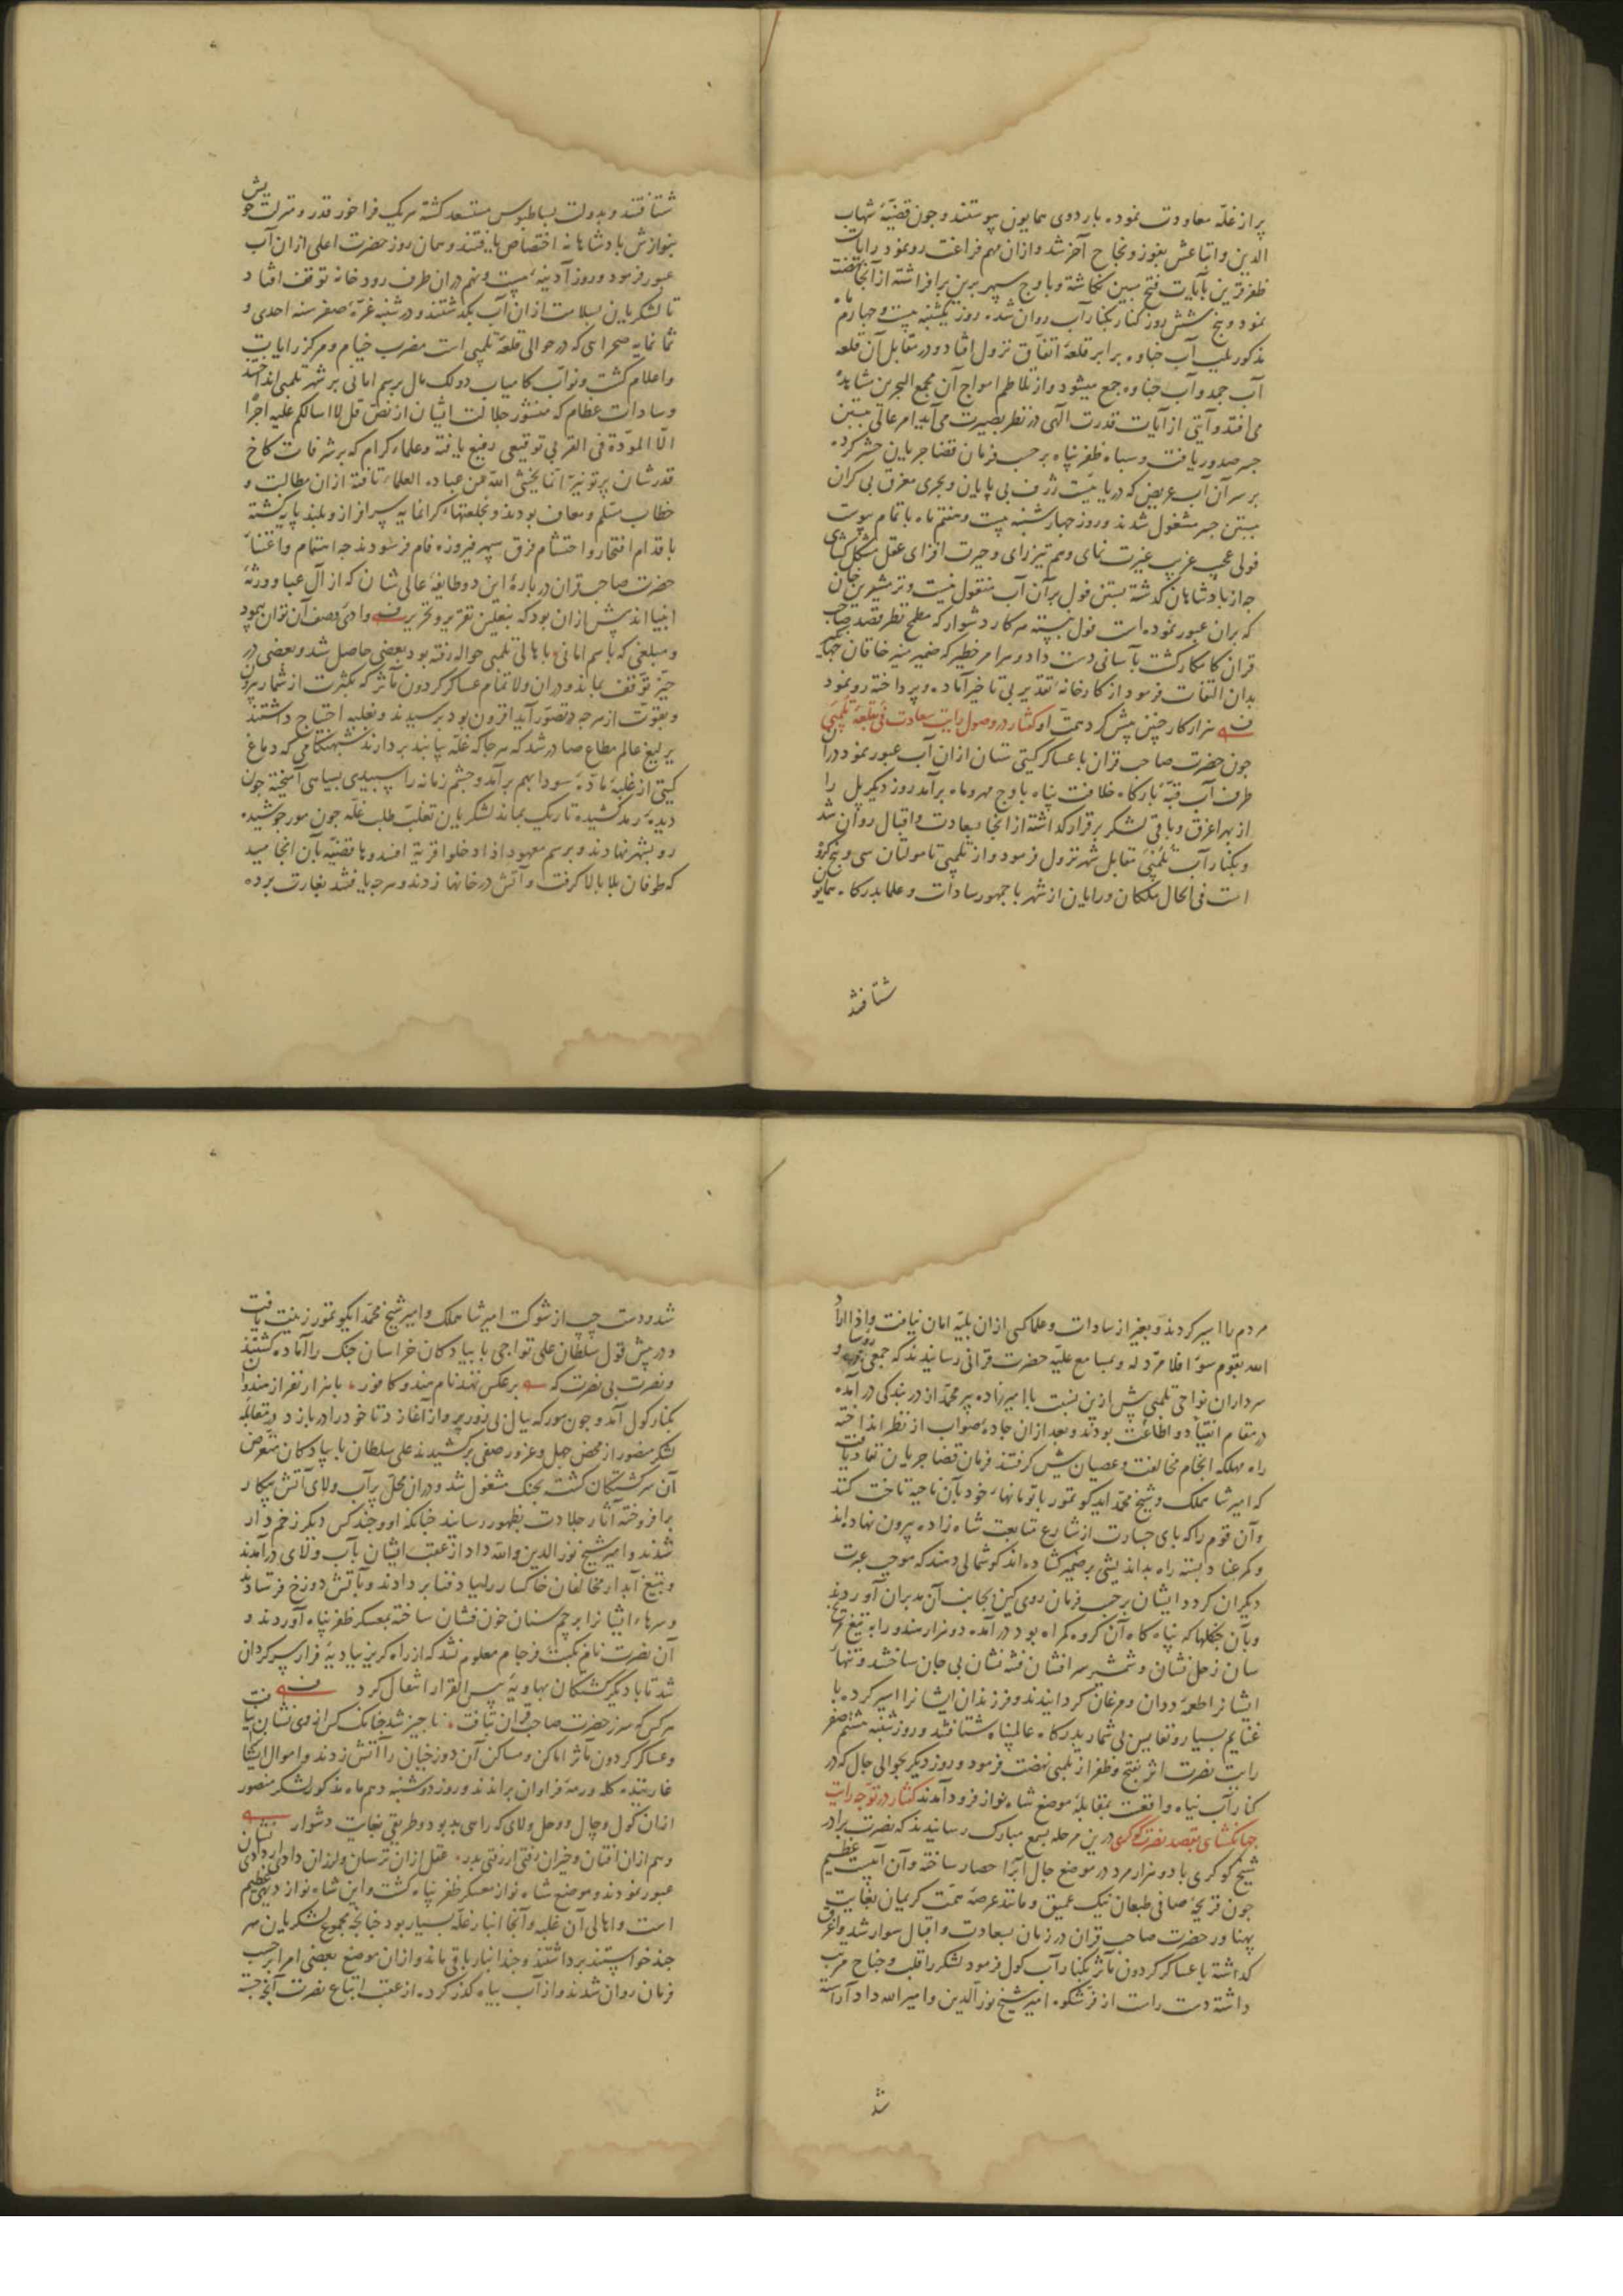 پر از غلّه معاودت نموده باردوی همایون پیوستند و جون قضیّهٔ شهاب
الدین و اتباعش بفوز و نجاح آخر شد و ازان مهم فراغت روی نمود رایات
ظفر قرین بآیات فتح مبین نگاشته و باوج سپهر برین برافراشته از آنجا نهضت
نمود و پنج شش روز کنار بکنار آب روان شده روز یکشنبه بیست و جهارم ماه
مذکور بلب آب جناوه برابر قلعهٔ اتفاق نزول افتاد و در مقابل آن قلعه
آب جمد و آب جناوه جمع میشود و از تلاطم امواج آن مجمع البحرین مشاهده
می افتد و آیتی از آیات قدرت الهی در نظر بصیرت می آید امر عالی ببستن
جسر صدور یافت و سپاه ظفر پناه بر حسب فرمان قضا جریان حشر کرده
بر سر آن آب عریض که دریاییست ژرف بی پایان و بحری مغرق بی کران
ببستن جسر مشغول شدند و روز جهارشنبه بیست و هفتم ماه باتمام پیوست
قولی عجیب غریب عبرت نمای وهم تیزرای و حیرت افزای عقل مشکل گشای
جه از پادشاهان گذشته بستن قول بر آن آب منقول نیست و ترمشیرین خان
که بران عبور نموده است قول نبسته هر کار دشوار که مطمح نظر قصد صاحب
قران کامکار گشت بآسانی دست داد و هر امر خطیر که ضمیر منیر خاقان جهانگیر
بدان التفات فرمود از کارخانهٔ تقدیر بی تاخیر آماده و پرداخته رو نمود
هزار کار جنین پیش کرد همت او گفتار در وصول رایت سعادت به قلعهٔ تلمبی
جون حضرت صاحب قران با عساکر گیتی ستان ازان آب عبور نمود در آن
طرف آب قبّهٔ بارگاه خلافت پناه باوج مهر و ماه برآمد روز دیگر پل را
از بهر اغرق و باقی لشکر برقرار گذاشته از آنجا بسعادت و اقبال روان شد
و بکنار آب تلمبی مقابل شهر نزول فرمود و از تلمبی تا مولتان سی و پنج کروه
است فی الحال ملکان و رایان از شهر با جمهور سادات و علما بدرگاه همایون
شتافتند
شتافتند و بدولت بساطبوس مستسعد گشته هر یک فراخور قدر و منزلت خویش
بنوازش پادشاهانه اختصاص یافتند و همان روز حضرت اعلی ازان آب
عبور فرمود و روز آدینه بیست و نهم دران طرف رودخانه توقف افتاد
تا لشکریان بسلامت ازان آب بگذشتند و در شنبه غرّهٔ صفر سنه احدی و
ثمانمایه صحرای که در حوالی قلعهٔ تلمبی است مضرب خیام و مرکز رایات
و اعلام گشت و نوّاب کامیاب دو لک مال برسم امانی بر شهر تلمبی انداختند
و سادات عظام که منشور جلالت ایشان از نص قل لا اسالکم علیه اجراً
الّا المودّة فی القربی توقیعی رفیع یافته و علماء کرام که بر شرفات کاخ
قدرشان پرتو نیّر انما یخشی الله من عباده العلماء تافته ازان مطالبت و
خطاب مسلّم و معاف بودند و بخلعتهاء گرانمایه سرافراز و بلند پایه گشته
باقدام افتخار و احتشام فرق سپهر فیروزه فام فرسودند جه اهتمام و اعتناء
حضرت صاحب قران دربارهٔ این دو طایفهٔ عالی شان که از آل عبا و ورثهٔ
انبیااند پیش ازان بود که بنعلین تقریر و تحریر وادی وصف آن توان پیمود
و مبلغی که باسم امانی باهالی تلمبی حواله رفته بود بعضی حاصل شد و بعضی در
حیّز توقف بماند و دران ولا تمام عساکر گردون مآثر که بکثرت از شمار بیرون
و بقوّت از هرجه در تصوّر آید افزون بود برسیدند و بغلّه احتیاج داشتند
یرلیغ عالم مطاع صادر شد که هر جا که غلّه یابند بردارند شبهنگامی که دماغ
گیتی از غلبهٔ مادّهٔ سودا بهم برآمد و چشم زمانه را سپیدی بسیاهی آمیخته جون
دیدهٔ رمد کشیده تاریک بماند لشکریان تغلّب طلب غلّه جون مور جوشیده
رو بشهر نهادند و برسم معهود اذا دخلوا قریة افسدوها قضیّه بآن انجامید
که طوفان بلا بالا گرفت و آتش در خانها زدند و هرجه یافتند بغارت برده
مردم را اسیر کردند و بغیر از سادات و علما کسی ازان بلیّه امان نیافت و اذا اراد
الله بقوم سوءً فلا مردّ له و بمسامع علیّه حضرت قرانی رسانیدند که جمعی رؤسا و
سرداران نواحی تلمبی پیش ازین نسبت با امیرزاده پیر محمّد از در بندگی در آمده
در مقام انقیاد و اطاعت بودند و بعد ازان جادهٔ صواب از نظر انداخته
راه مهلکه انجام مخالفت و عصیان پیش گرفتند فرمان قضا جریان نفاد یافت
که امیر شاه ملک و شیخ محمّد ایدکو تمور با تومانهاء خود بآن ناحیه تاخت کنند
و آن قوم را که پای جسارت از شارع متابعت شاه زاده بیرون نهاده اند
و کمر عناد بسته راه بداندیشی بر ضمیر گشاده اند گوشمالی دهند که موجب عبرت
دیگران گردد ایشان بر حسب فرمان روی کین بجانب آن مدبران آوردند
و بآن جنگلها که پناه گاه آن گروه گمراه بود در آمده دو هزار هندو را به تیغ
سان زحل نشان و شمشیر سرافشان فتنه نشان بی جان ساختند و تنهاء
ایشانرا طعمهٔ ددان و مرغان گردانیدند و فرزندان ایشانرا اسیر کرده با
غنایم بسیار و نفایس بی شمار بدرگاه عالمپناه شتافتند و روز شنبه هشتم صفر
رایت نصرت اثر بفتح و ظفر از تلمبی نهضت فرمود و روز دیگر بحوالی جال که در
کنار آب بیاه واقعست بمقابلهٔ موضع شاه نواز فرود آمدند گفتار در توجه رایت
جهانگشای بقصد نصرت کوکری درین مرحله بسمع مبارک رسانیدند که نصرت برادر
شیخ کوکری با دو هزار مرد در موضع جال آبرا حصار ساخته و آن آبیست عظیم
جون قریحهٔ صافی طبعان نیک عمیق و مانند عرصهٔ همّت کریمان بغایت
پهناور حضرت صاحب قران در زمان بسعادت و اقبال سوار شد و اغرق
گذاشته با عساکر گردون مآثر بکنار آب کول فرمود لشکر را قلب و جناح مرتب
داشته دست راست از فر شکوه امیر شیخ نور الدین و امیر الله داد آراسته
شد
شد و دست چپ از شوکت امیر شاه ملک و امیر شیخ محمّد ایکو تمور زینت یافت
و در پیش قول سلطان علی تواجی با پیادگان خراسان جنگ را آماده گشتند
و نصرت بی نصرت که برعکس نهند نام هندو کافور با هزار نفر از هندوان
بکنار کول آمد و جون مور که ببال بی زور پرواز آغازد تا خود را در بازد در مقابله
لشکر منصور از محض جهل و غرور صفی برکشیدند علی سلطان با پیادگان متعرض
آن سرگشتگان گشته بجنگ مشغول شد و دران محل پرآب و لای آتش پیکار
برافروخته آثار جلادت بظهور رسانید جنانکه او و جند کس دیگر زخم دار
شدند و امیر شیخ نور الدین و الله داد از عقب ایشان بآب و لای درآمدند
و بتیغ آبدار مخالفان خاکسار را بباد فنا بر دادند و بآتش دوزخ فرستادند
و سرهاء ایشانرا پرچم سنان خون فشان ساخته بمعسکر ظفر پناه آوردند و
آن نصرت نام نکبت فرجام معلوم نشد که از راه گریز ببادیهٔ فرار سرگردان
شد تا با دیگر کشتگان بهاویهٔ بئس القرار انتقال کرد
هر کس که سر ز حضرت صاحب قران بتافت ناجیز شد جنانک کس از وی نشان نیافت
و عساکر گردون مآثر اماکن و مساکن آن دوزخیان را آتش زدند و اموال ایشان
غارتیده گله و رمه فراوان براندند و روز دوشنبه دهم ماه مذکور لشکر منصور
ازان کول و جال و وحل و لای که راهی بد بود و طریقی بغایت دشوار
وهم ازان افتان و خیزان رفتی ار رفتی بدر عقل ازان ترسان و لرزان دادی ار دادی نشان
عبور نمودند و موضع شاه نواز معسکر ظفر پناه گشت و این شاه نواز دیهی عظیم
است و اهالی آن غلبه و آنجا انبار غلّه بسیار بود جنانجه مجموع لشکریان هر
جند خواستند برداشتند و جند انبار باقی ماند و ازان موضع بعضی امرا بر حسب
فرمان روان شدند و از آب بیاه گذر کرده از عقب اتباع نصرت